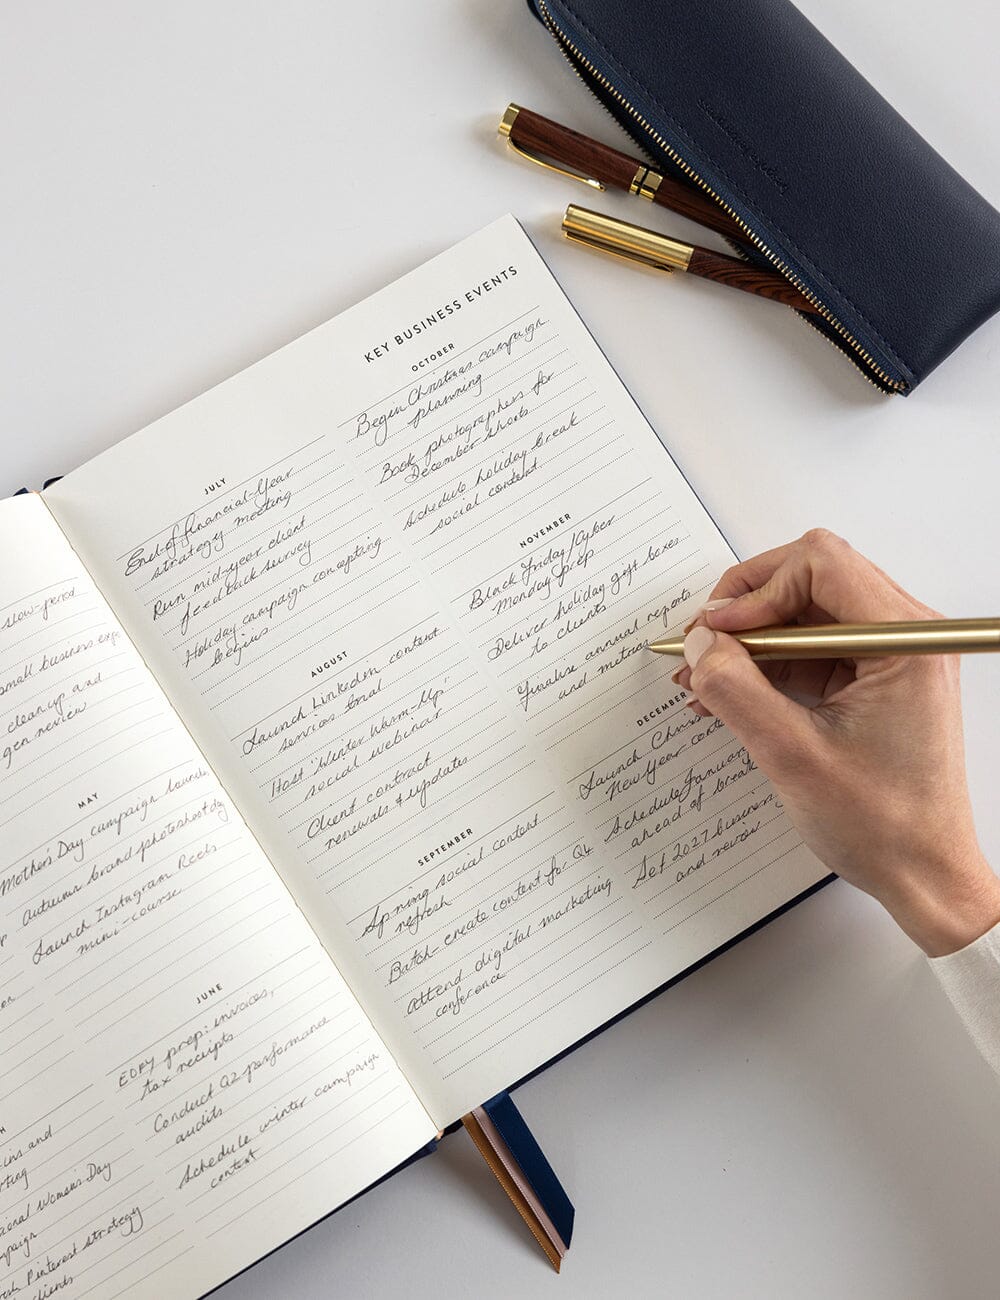 slow-period
small business
cleanup and
review
MAY
Mother's Day campaign launch
autumn brand photoshoot day
Launch Instagram Reels
mini-course
JUNE
EOFY prep: invoices,
tax receipts
Conduct Q2 performance
audits
Schedule winter campaign
content
and
Women's Day
Pinterest strategy
clients
KEY BUSINESS EVENTS
JULY
End-of-financial-Year
strategy meeting
Run mid-year client
feedback survey
Holiday campaign concepting
begins
AUGUST
Launch LinkedIn content
services trial
Host 'Winter Warm-Up'
social webinar
Client contract
renewals & updates
SEPTEMBER
Spring social content
refresh
Batch-create content for Q4
Attend digital marketing
conference
OCTOBER
Begin Christmas campaign
planning
Book photographers for
December shoots
Schedule holiday break
social content
NOVEMBER
Black Friday/Cyber
Monday prep
Deliver holiday gift boxes
to clients
Finalise annual reports
and metrics
DECEMBER
Launch
New Year
Schedule January
ahead of break
Set 2027 business
and review